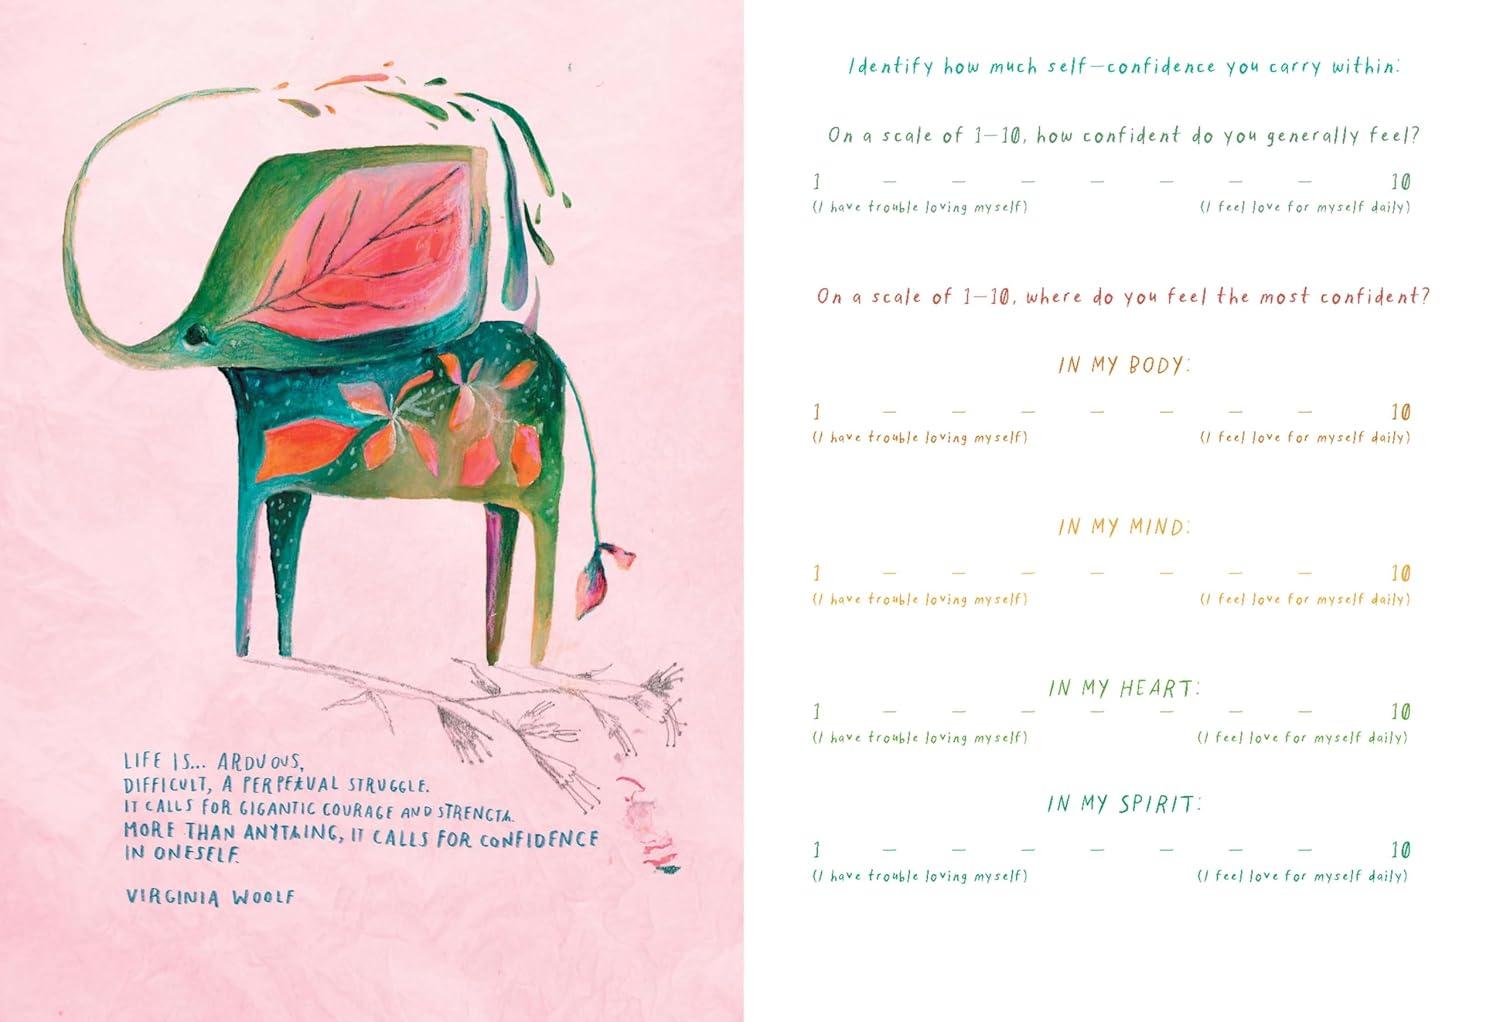 LIFE IS... ARDUOUS,
DIFFICULT, A PERPETUAL STRUGGLE.
IT CALLS FOR GIGANTIC COURAGE AND STRENGTH.
MORE THAN ANYTHING, IT CALLS FOR CONFIDENCE
IN ONESELF.
VIRGINIA WOOLF
Identify how much self-confidence you carry within:
On a scale of 1-10, how confident do you generally feel?
1 — — — — — — — 10
(I have trouble loving myself) (I feel love for myself daily)
On a scale of 1-10, where do you feel the most confident?
IN MY BODY:
1 — — — — — — — 10
(I have trouble loving myself) (I feel love for myself daily)
IN MY MIND:
1 — — — — — — — 10
(I have trouble loving myself) (I feel love for myself daily)
IN MY HEART:
1 — — — — — — — 10
(I have trouble loving myself) (I feel love for myself daily)
IN MY SPIRIT:
1 — — — — — — — 10
(I have trouble loving myself) (I feel love for myself daily)